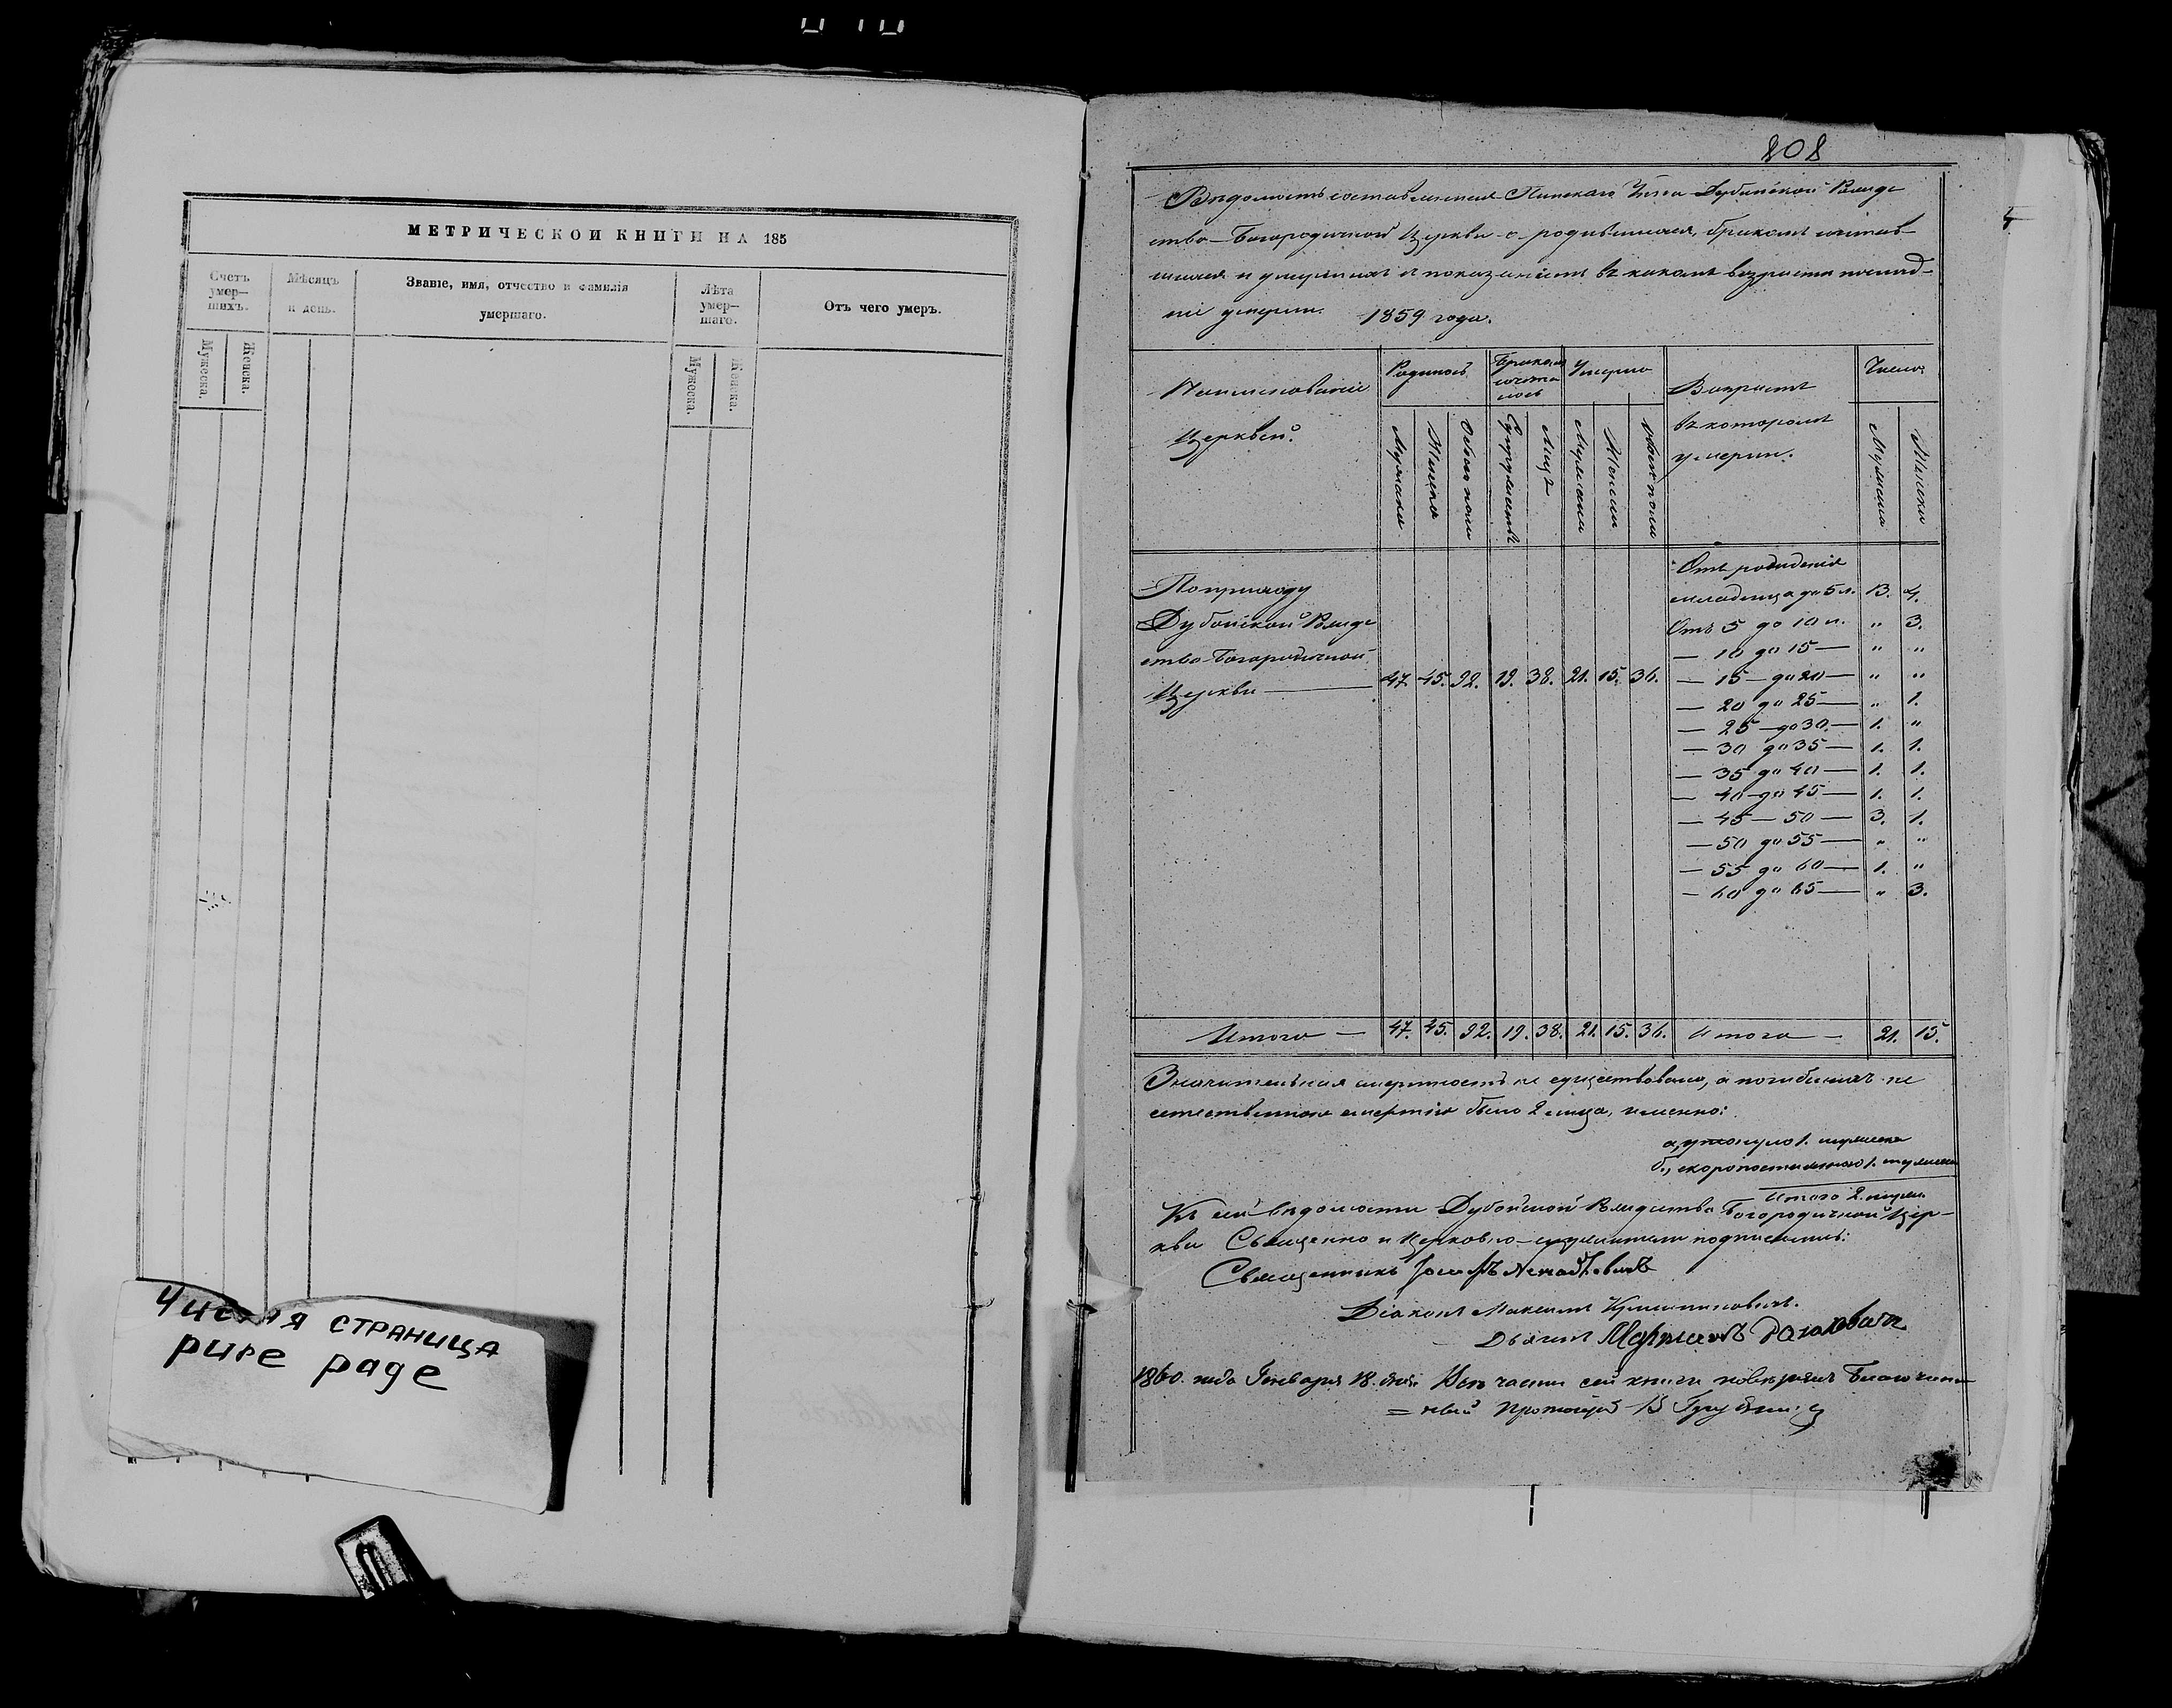 МЕТРИЧЕСКОИ КНИГИ НА 185
Счетъ умер—шихъ.
Мѣсяцъ и день.
Званіе, имя, отчество и фамилія умершаго.
Лѣта умер—шаго.
Отъ чего умеръ.
Мужеска.
Женска.
Мужеска.
Женска.
Чистая страница
pure page
208
Вѣдомость составленная Пинскаго Уѣзда Дубойской Рождe
ство-Богородичной Церкви о родившихся, бракомъ сочетав
шихся и умершихъ съ показаніемъ въ какомъ возрастѣ послѣд–
ніе умерли. 1859 года.
Наименованіе
Церквей.
Родилось
Бракомъ
сочета
лось
Умерло
Возрастъ
въ которомъ
умерли.
Число
Мужеска
Женска
Обоего пола
Супружествъ
Лицъ
Мужеска
Женска
Обоего пола
Мужеска
Женска
По приходу
Дубойской Рожде
ство-Богородичной
Церкви — 47. 45. 92. 19. 38. 21. 15. 36.
Отъ рожденія
младенца до 5 л. 13. 4.
Отъ 5 до 10 л. " 3.
— 10 до 15 — " "
— 15 — до 20 — " "
— 20 до 25 — " 1.
— 25 — до 30 — 1. "
— 30 до 35 — 1. 1.
— 35 до 40 — 1. 1.
— 40 — до 45 — 1. 1.
— 45 — 50 — 3. 1.
— 50 до 55 — " "
— 55 до 60 — 1. "
— 60 до 65 — " 3.
Итого — 47. 45. 92. 19. 38. 21. 15. 36. Итого — 21. 15.
Значительная смертность не существовала, а погибшихъ не
естественною смертію было 2 лица, именно:
а, утонуло 1. мужеска
б., скоропостижно 1. мужеска
Итого 2. мужес.
Къ сей вѣдомости Дубойской Рождество Богородичной Цер–
кви Священно и Церковно-служители подписались:
Священникъ Іосифъ
Діаконъ Максимъ
Дьячекъ
1860. года Января 18. дня. Всѣ части сей книги повѣрялъ Благочин
= ный Протоіерей В